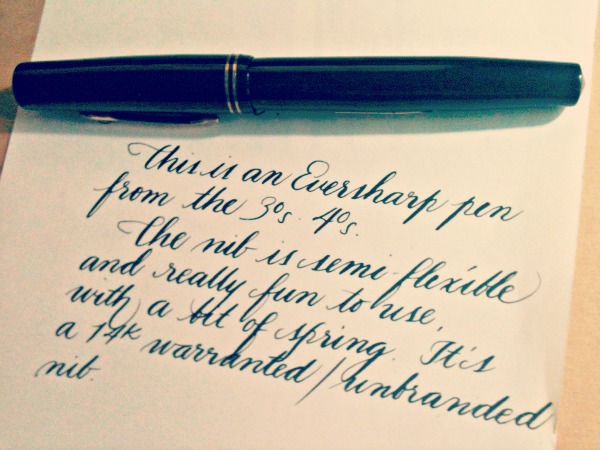 This is an Eversharp pen
from the 30s. 40s.
The nib is semi flexible
and really fun to use,
with a bit of spring. It's
a 14K warranted / unbranded
nib.